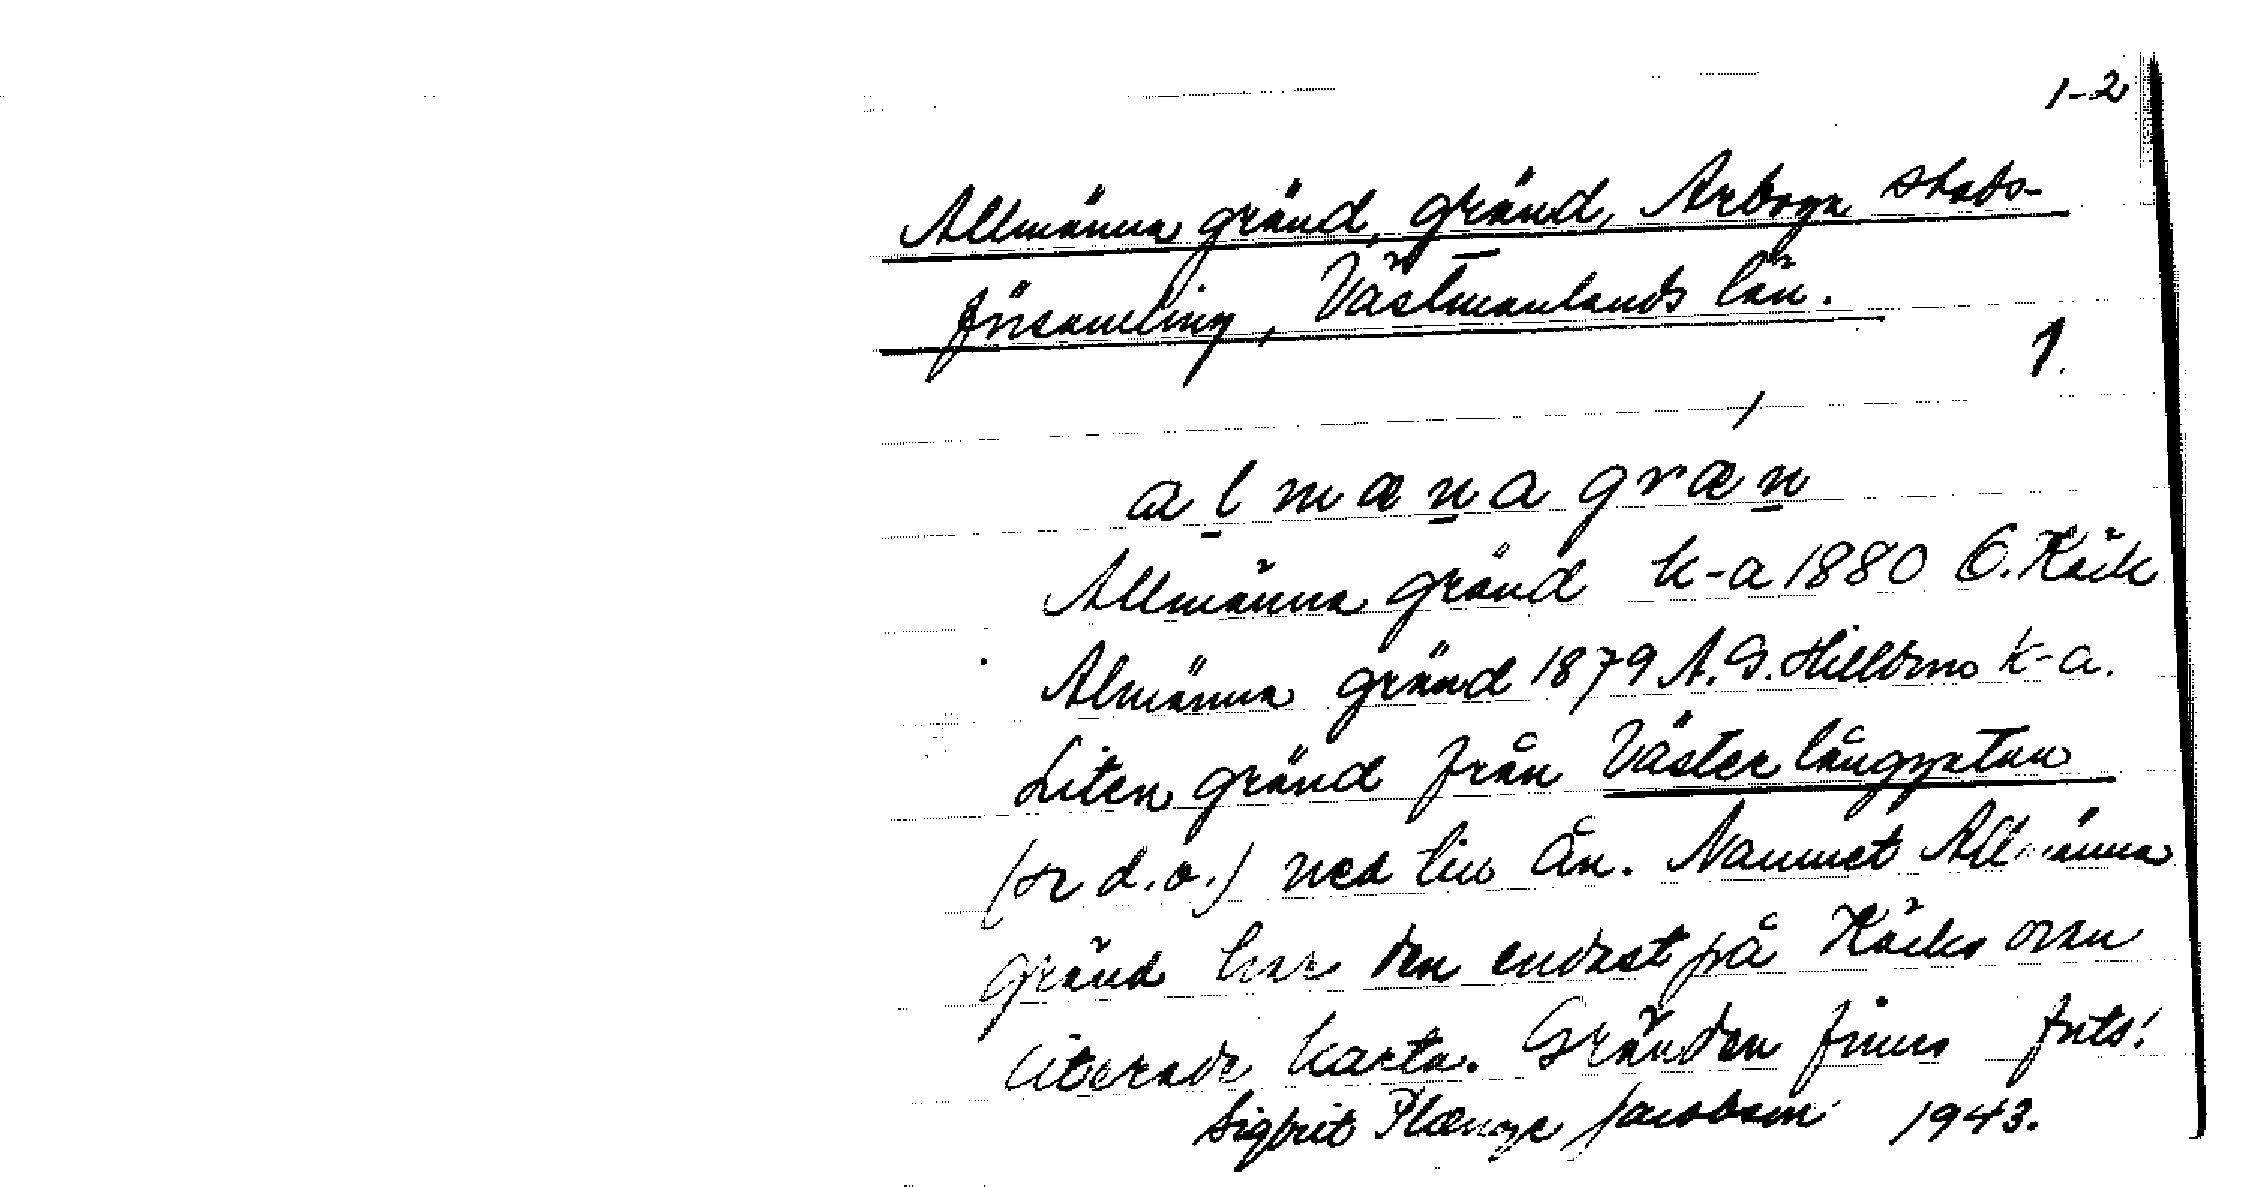 1-2
Allmänna gränd, gränd, Arboga stads-
församling, Västmanlands län.
1.
almænagræn
Allmänna gränd k-a 1880 E. Käck
Almänna gränd 1879 A. G. Hillbms k-a.
Liten gränd från Västerlånggatan
(sr d.o.) ned till ån. Namnet Allmänna
gränd har den endast på Käcks ovan
citerade karta. Gränden finns forts!
Sigbrit Plænge Jacobson 1943.